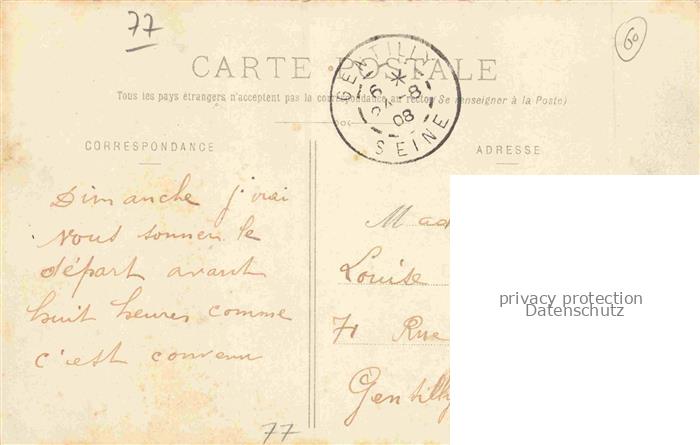 77
60
CARTE POSTALE
Tous les pays étrangers n'acceptent pas la correspondance au recto (Se renseigner à la Poste)
GENTILLY
6 8
08
SEINE
CORRESPONDANCE
Dimanche j'irai
vous sonner le
départ avant
huit heures comme
c'est convenu
ADRESSE
Mad
Louise
71 Rue
Gentilly
privacy protection
Datenschutz
77